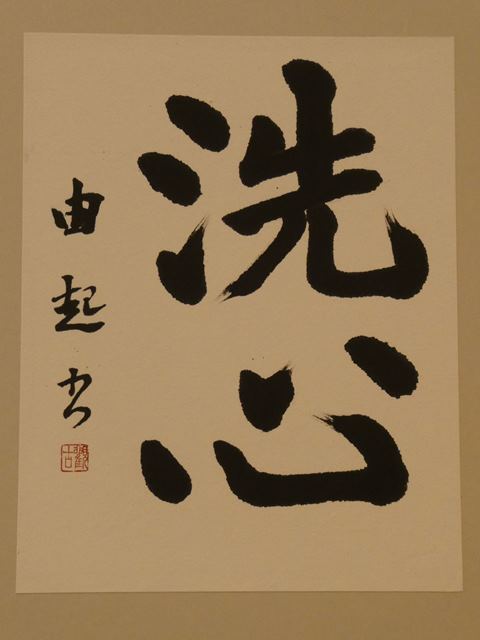 洗心
由起书